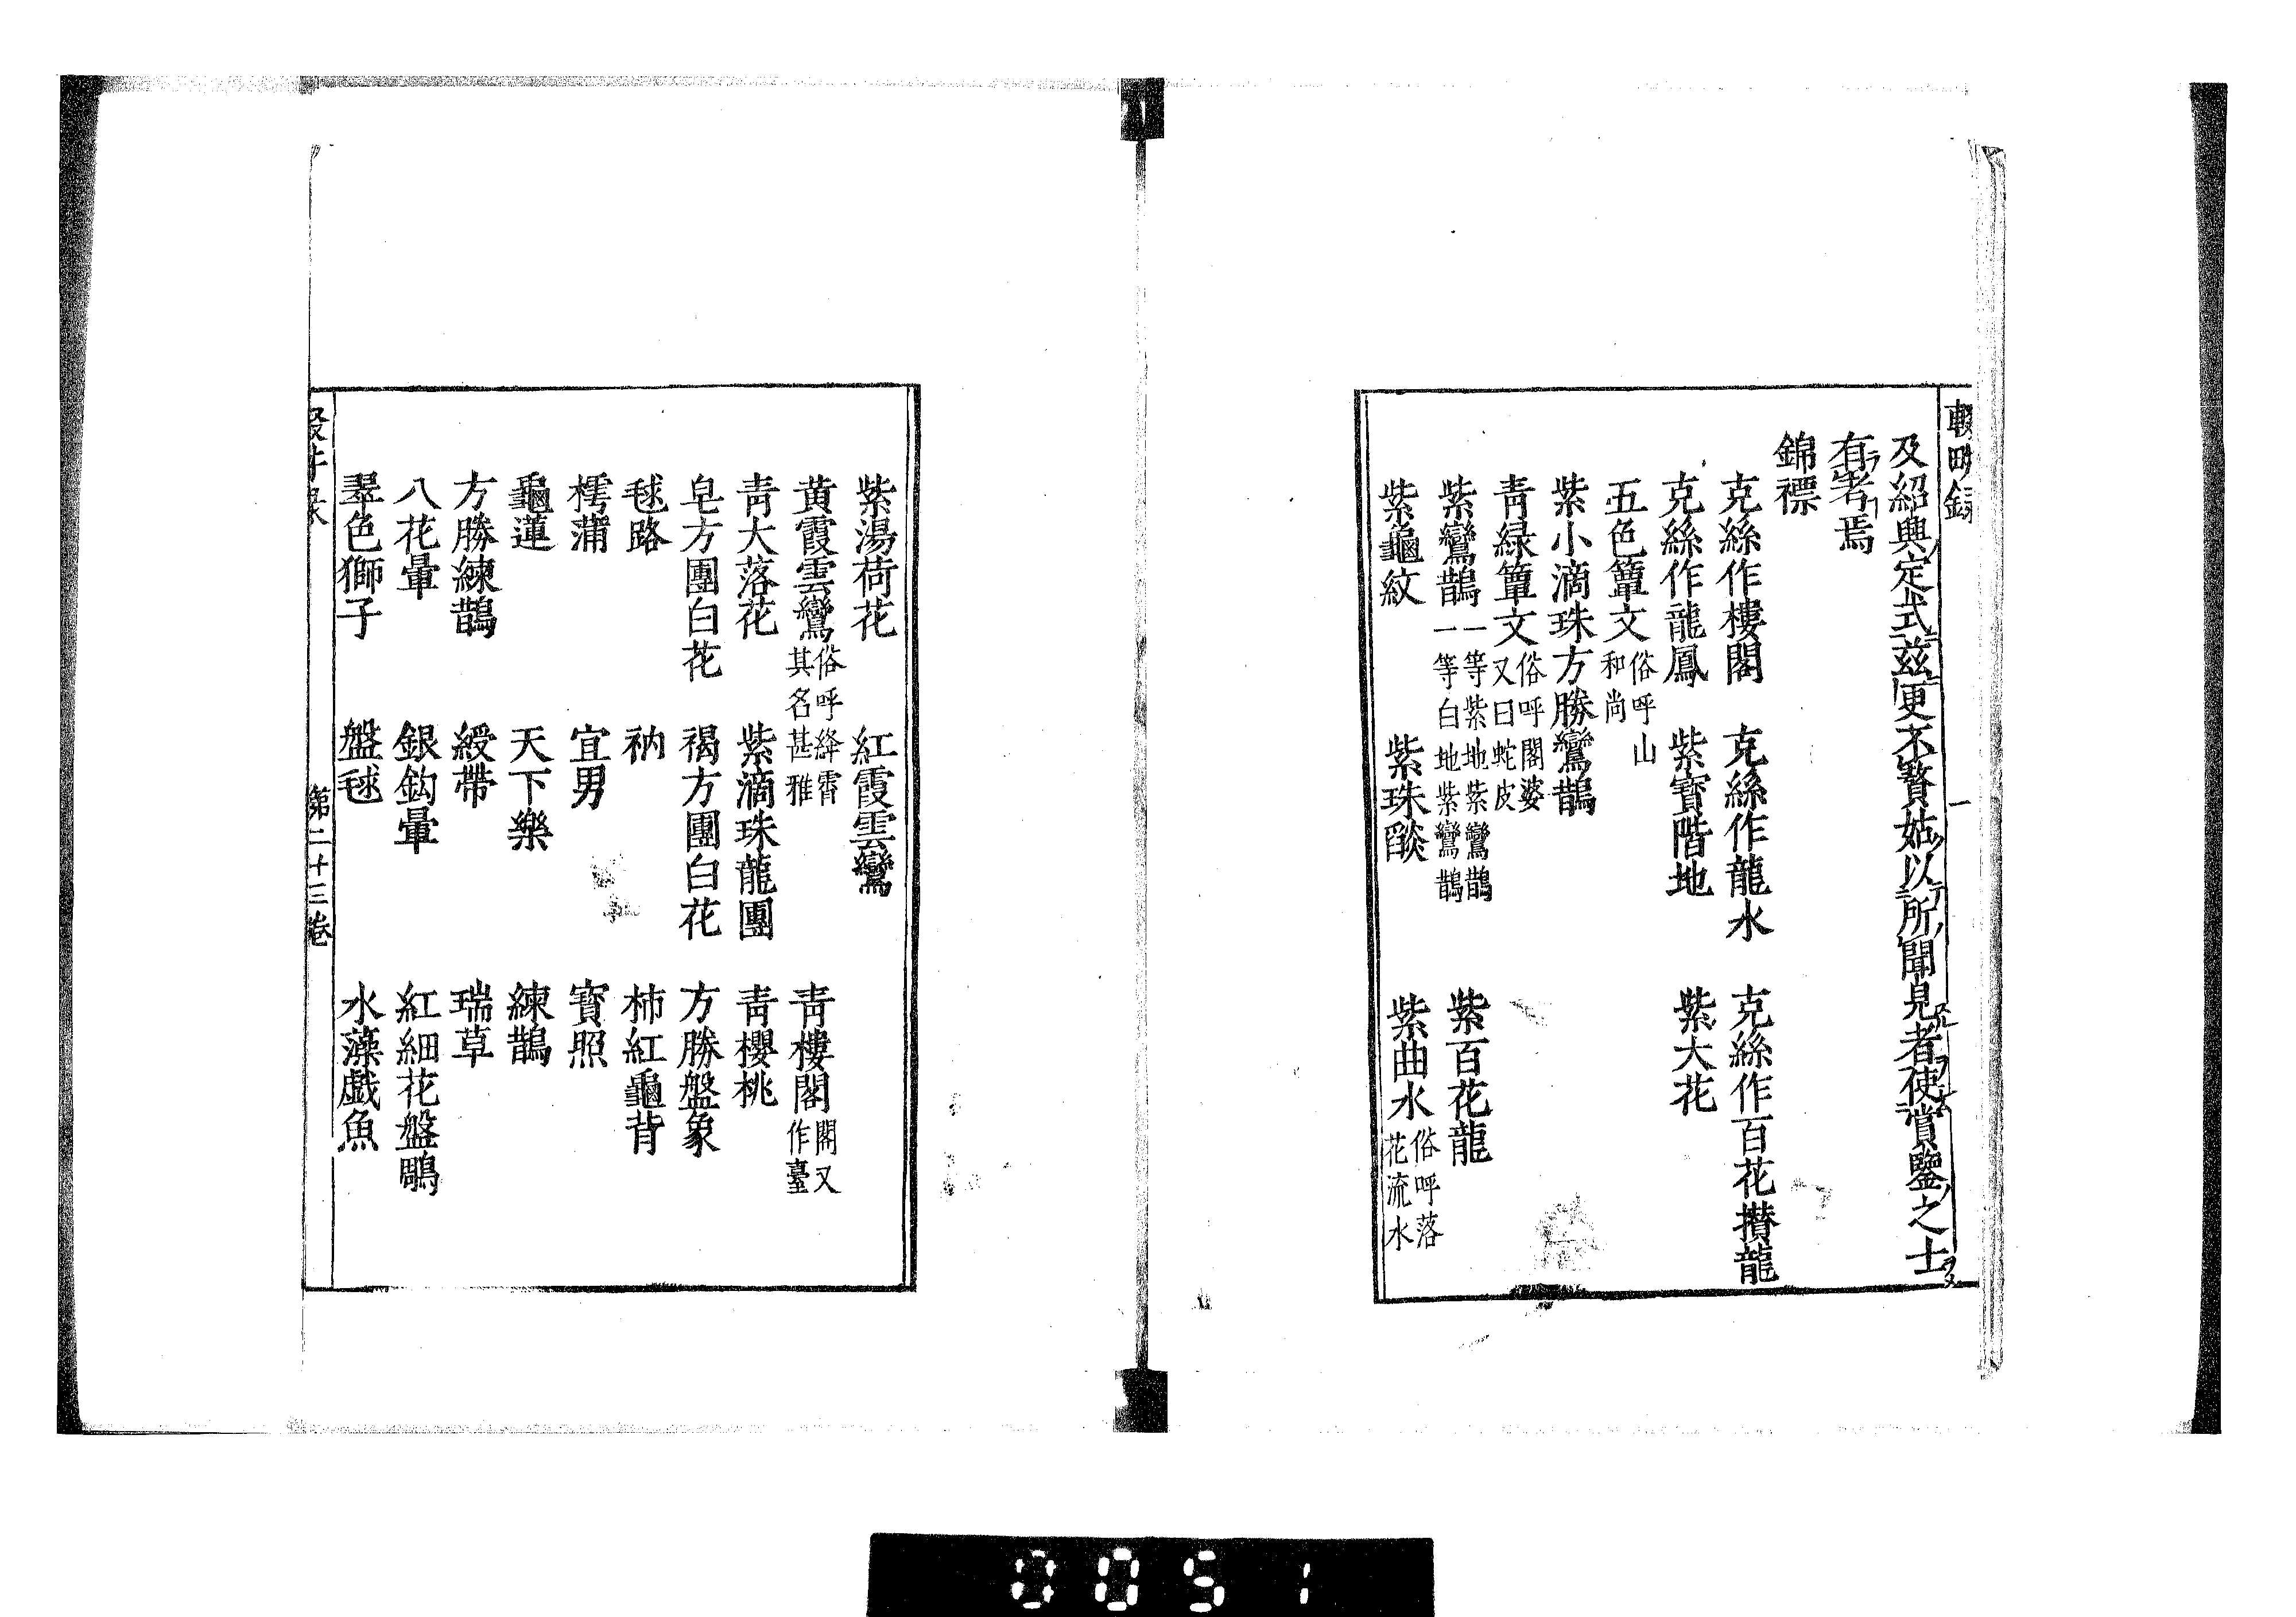 輟畊録
一
及紹興定式茲更不贅姑以所聞見者使賞鑒之士
有考焉
錦褾
克絲作樓閣　克絲作龍水　克絲作百花攅龍
克絲作龍鳳　紫寶階地　紫大花
五色簟文俗呼山和尚
紫小滴珠方勝鸞鵲
青緑簟文俗呼閣婆又曰蛇皮
紫鸞鵲一等紫地紫鸞鵲一等白地紫鸞鵲　紫百花龍
紫龜紋　紫珠燄　紫曲水俗呼落花流水
紫湯荷花　紅霞雲鸞
黄霞雲鸞俗呼絳霄其名甚雅　青樓閣閣又作臺
青大落花　紫滴珠龍團　青櫻桃
皂方團白花　褐方團白花　方勝盤象
毬路　衲　柿紅龜背
樗蒲　宜男　寶照
龜蓮　天下樂　練鵲
方勝練鵲　綬帶　瑞草
八花暈　銀鈎暈　紅細花盤鵰
翠色獅子　盤毬　水藻戯魚
第二十三卷
0051